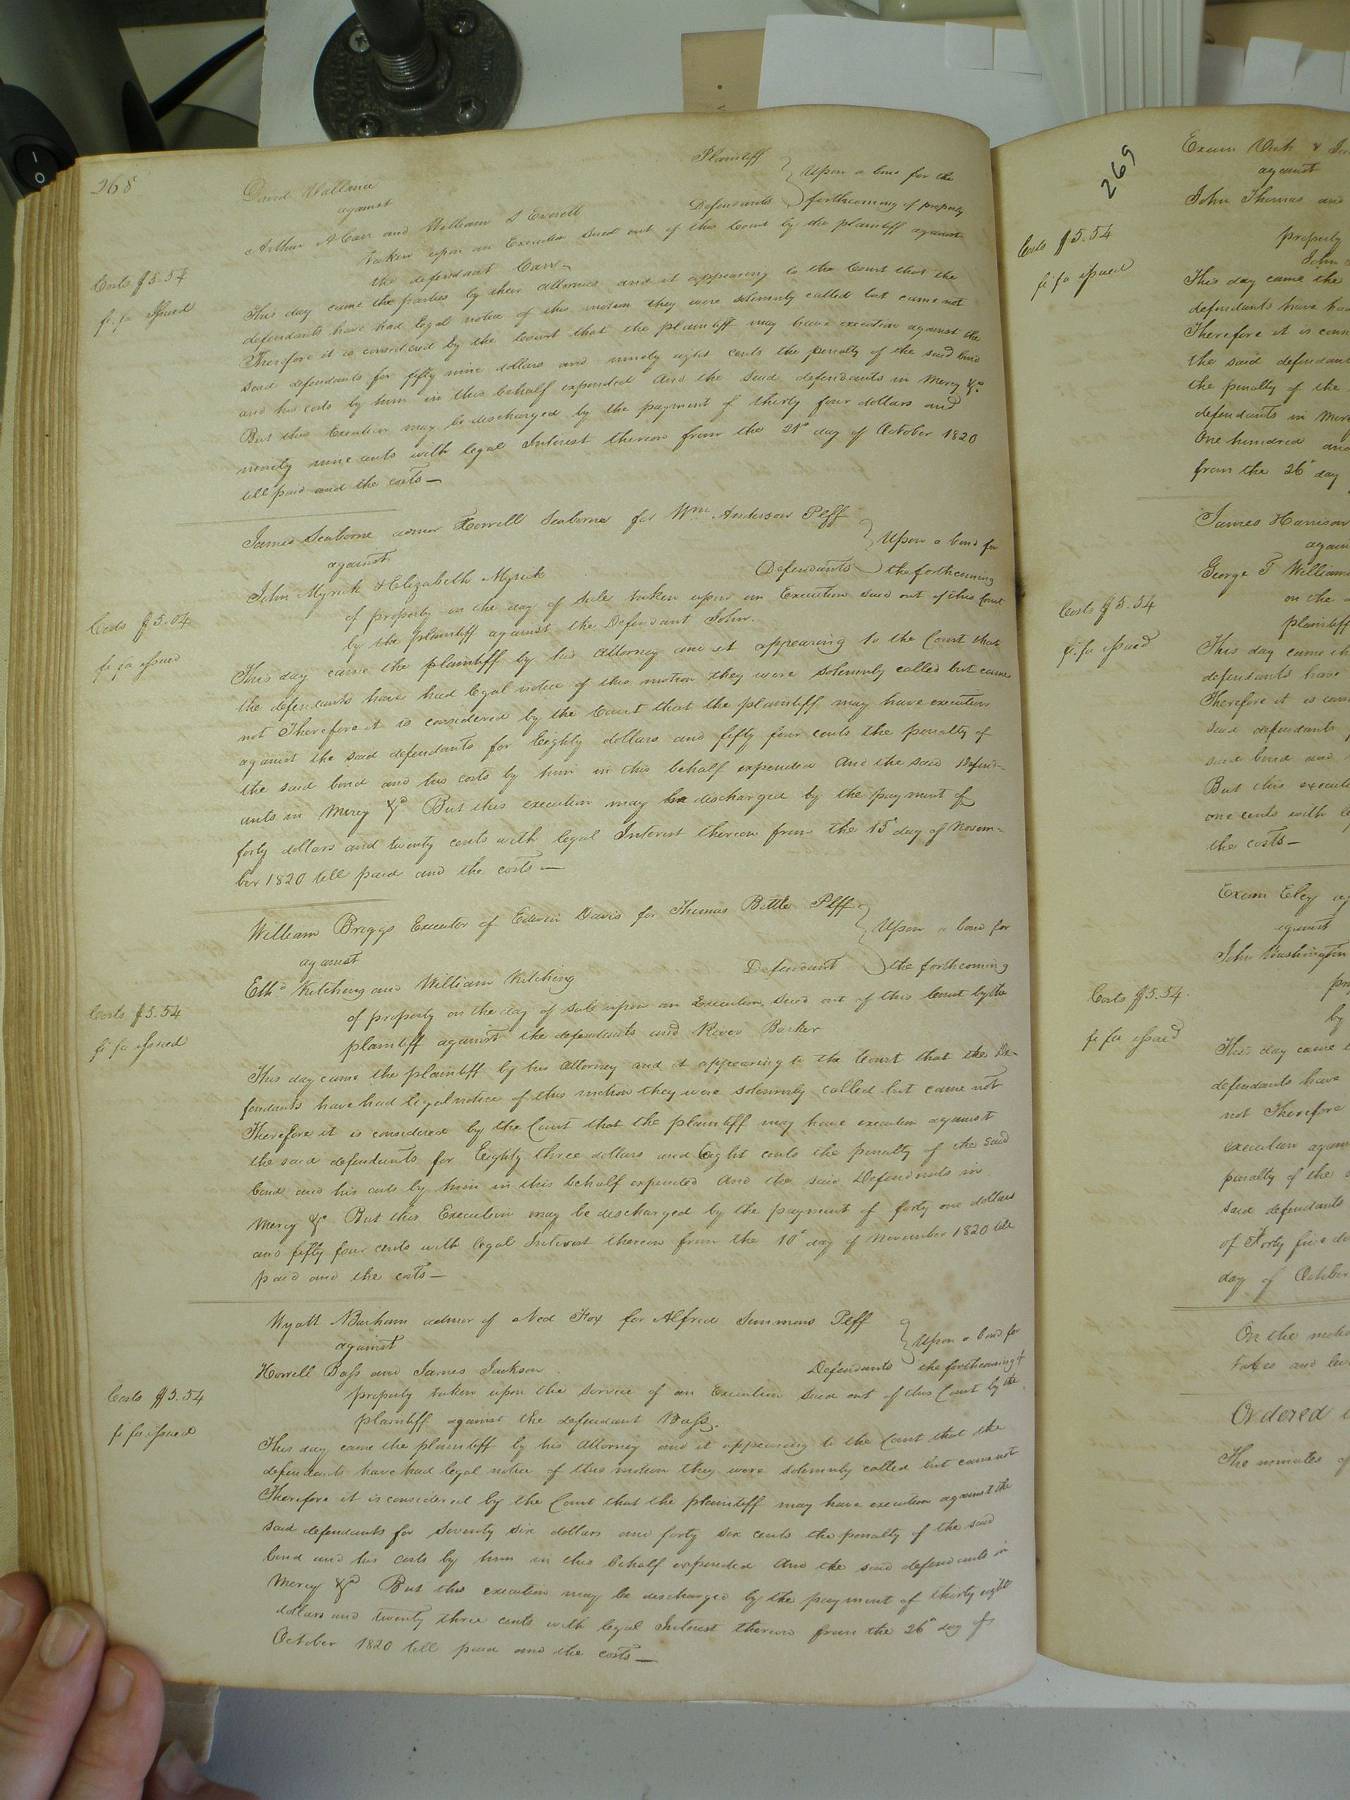 268
David Wallace Plaintiff
against
Upon a bond for the
Arthur A Carr and William S Everett Defendants forthcoming of property
taken upon an Execution Sued out of this Court by the plaintiff against
the defendant Carr
Costs $5.54
fi. fa issued
This day came the parties by their attornies and it appearing to the Court that the
defendants have had legal notice of this motion they were solemnly called but came not
Therefore it is considered by the Court that the plaintiff may have execution against the
said defendants for fifty nine dollars and ninety eight cents the penalty of the said bond
and his costs by him in this behalf expended And the said defendants in Mercy &c
But this Execution may be discharged by the payment of thirty four dollars and
ninety nine cents with legal Interest thereon from the 21st day of October 1820
till paid and the costs—
James Seaborne admor Howell Seaborne for Wm Anderson Plff
against
Upon a bond for
John Myrick & Elizabeth Myrick Defendants the forthcoming
of property on the day of sale taken upon an Execution sued out of this Court
by the plaintiff against the Defendant John.
Costs $5.04
fi fa issued
This day came the plaintiff by his attorney and it appearing to the Court that
the defendants have had legal notice of this motion they were solemnly called but came
not Therefore it is considered by the Court that the plaintiff may have execution
against the said defendants for Eighty dollars and fifty four cents the penalty of
the said bond and his costs by him in this behalf expended And the said defend-
ants in Mercy &c But this execution may be discharged by the payment of
forty dollars and twenty cents with legal Interest thereon from the 15 day of Novem-
ber 1820 till paid and the costs—
William Briggs Executor of Edwin Davis for Thomas Bittle Plff
against
Upon a bond for
Ethd Kitching and William Kitching Defendant the forthcoming
of property on the day of sale upon an Execution sued out of this Court by the
plaintiff against the defendants and River Barker
Costs $5.54
fi fa issued
This day came the plaintiff by his attorney and it appearing to the Court that the De-
fendants have had legal notice of this motion they were solemnly called but came not
Therefore it is considered by the Court that the plaintiff may have execution against
the said defendants for Eighty three dollars and Eight cents the penalty of the said
bond and his costs by him in this behalf expended And the said Defendants in
Mercy &c But this Execution may be discharged by the payment of forty one dollars
and fifty four cents with legal Interest thereon from the 10th day of November 1820 till
paid and the costs—
Wyatt Barham admor of Ned Fox for Alfred Simmons Plff
against
Upon a bond for
Howell Bass and James Jackson Defendants the forthcoming of
property taken upon the service of an Execution sued out of this Court by the
plaintiff against the defendant Bass.
Costs $5.54
fi fa issued
This day came the plaintiff by his attorney and it appearing to the Court that the
defendants have had legal notice of this motion they were solemnly called but came not
Therefore it is considered by the Court that the plaintiff may have execution against the
said defendants for Seventy six dollars and forty six cents the penalty of the said
bond and his costs by him in this behalf expended And the said defendants in
Mercy &c But this execution may be discharged by the payment of thirty eight
dollars and twenty three cents with legal Interest thereon from the 26th day of
October 1820 till paid and the costs—
269
Exum &
against
John Thomas and
property
John
Costs $5.54
fi fa issued
This day came the
defendants have had
Therefore it is cons
the said defendants
the penalty of the
defendants in Mer
One hundred and
from the 26th day
James Harrison
again
George T William
on the
plaintiff
Costs $5.54
fi. fa issued
This day came th
defendants have
Therefore it is con
said defendants
said bond and
But this execut
one cents with le
the costs—
Exum Eley
against
John Washington
pr
by
Costs $5.54
fi fa issued
This day came t
defendants have
not Therefore
execution again
penalty of the
said defendants
of Forty five do
day of October
On the motion
takes and
Ordered
The minutes of